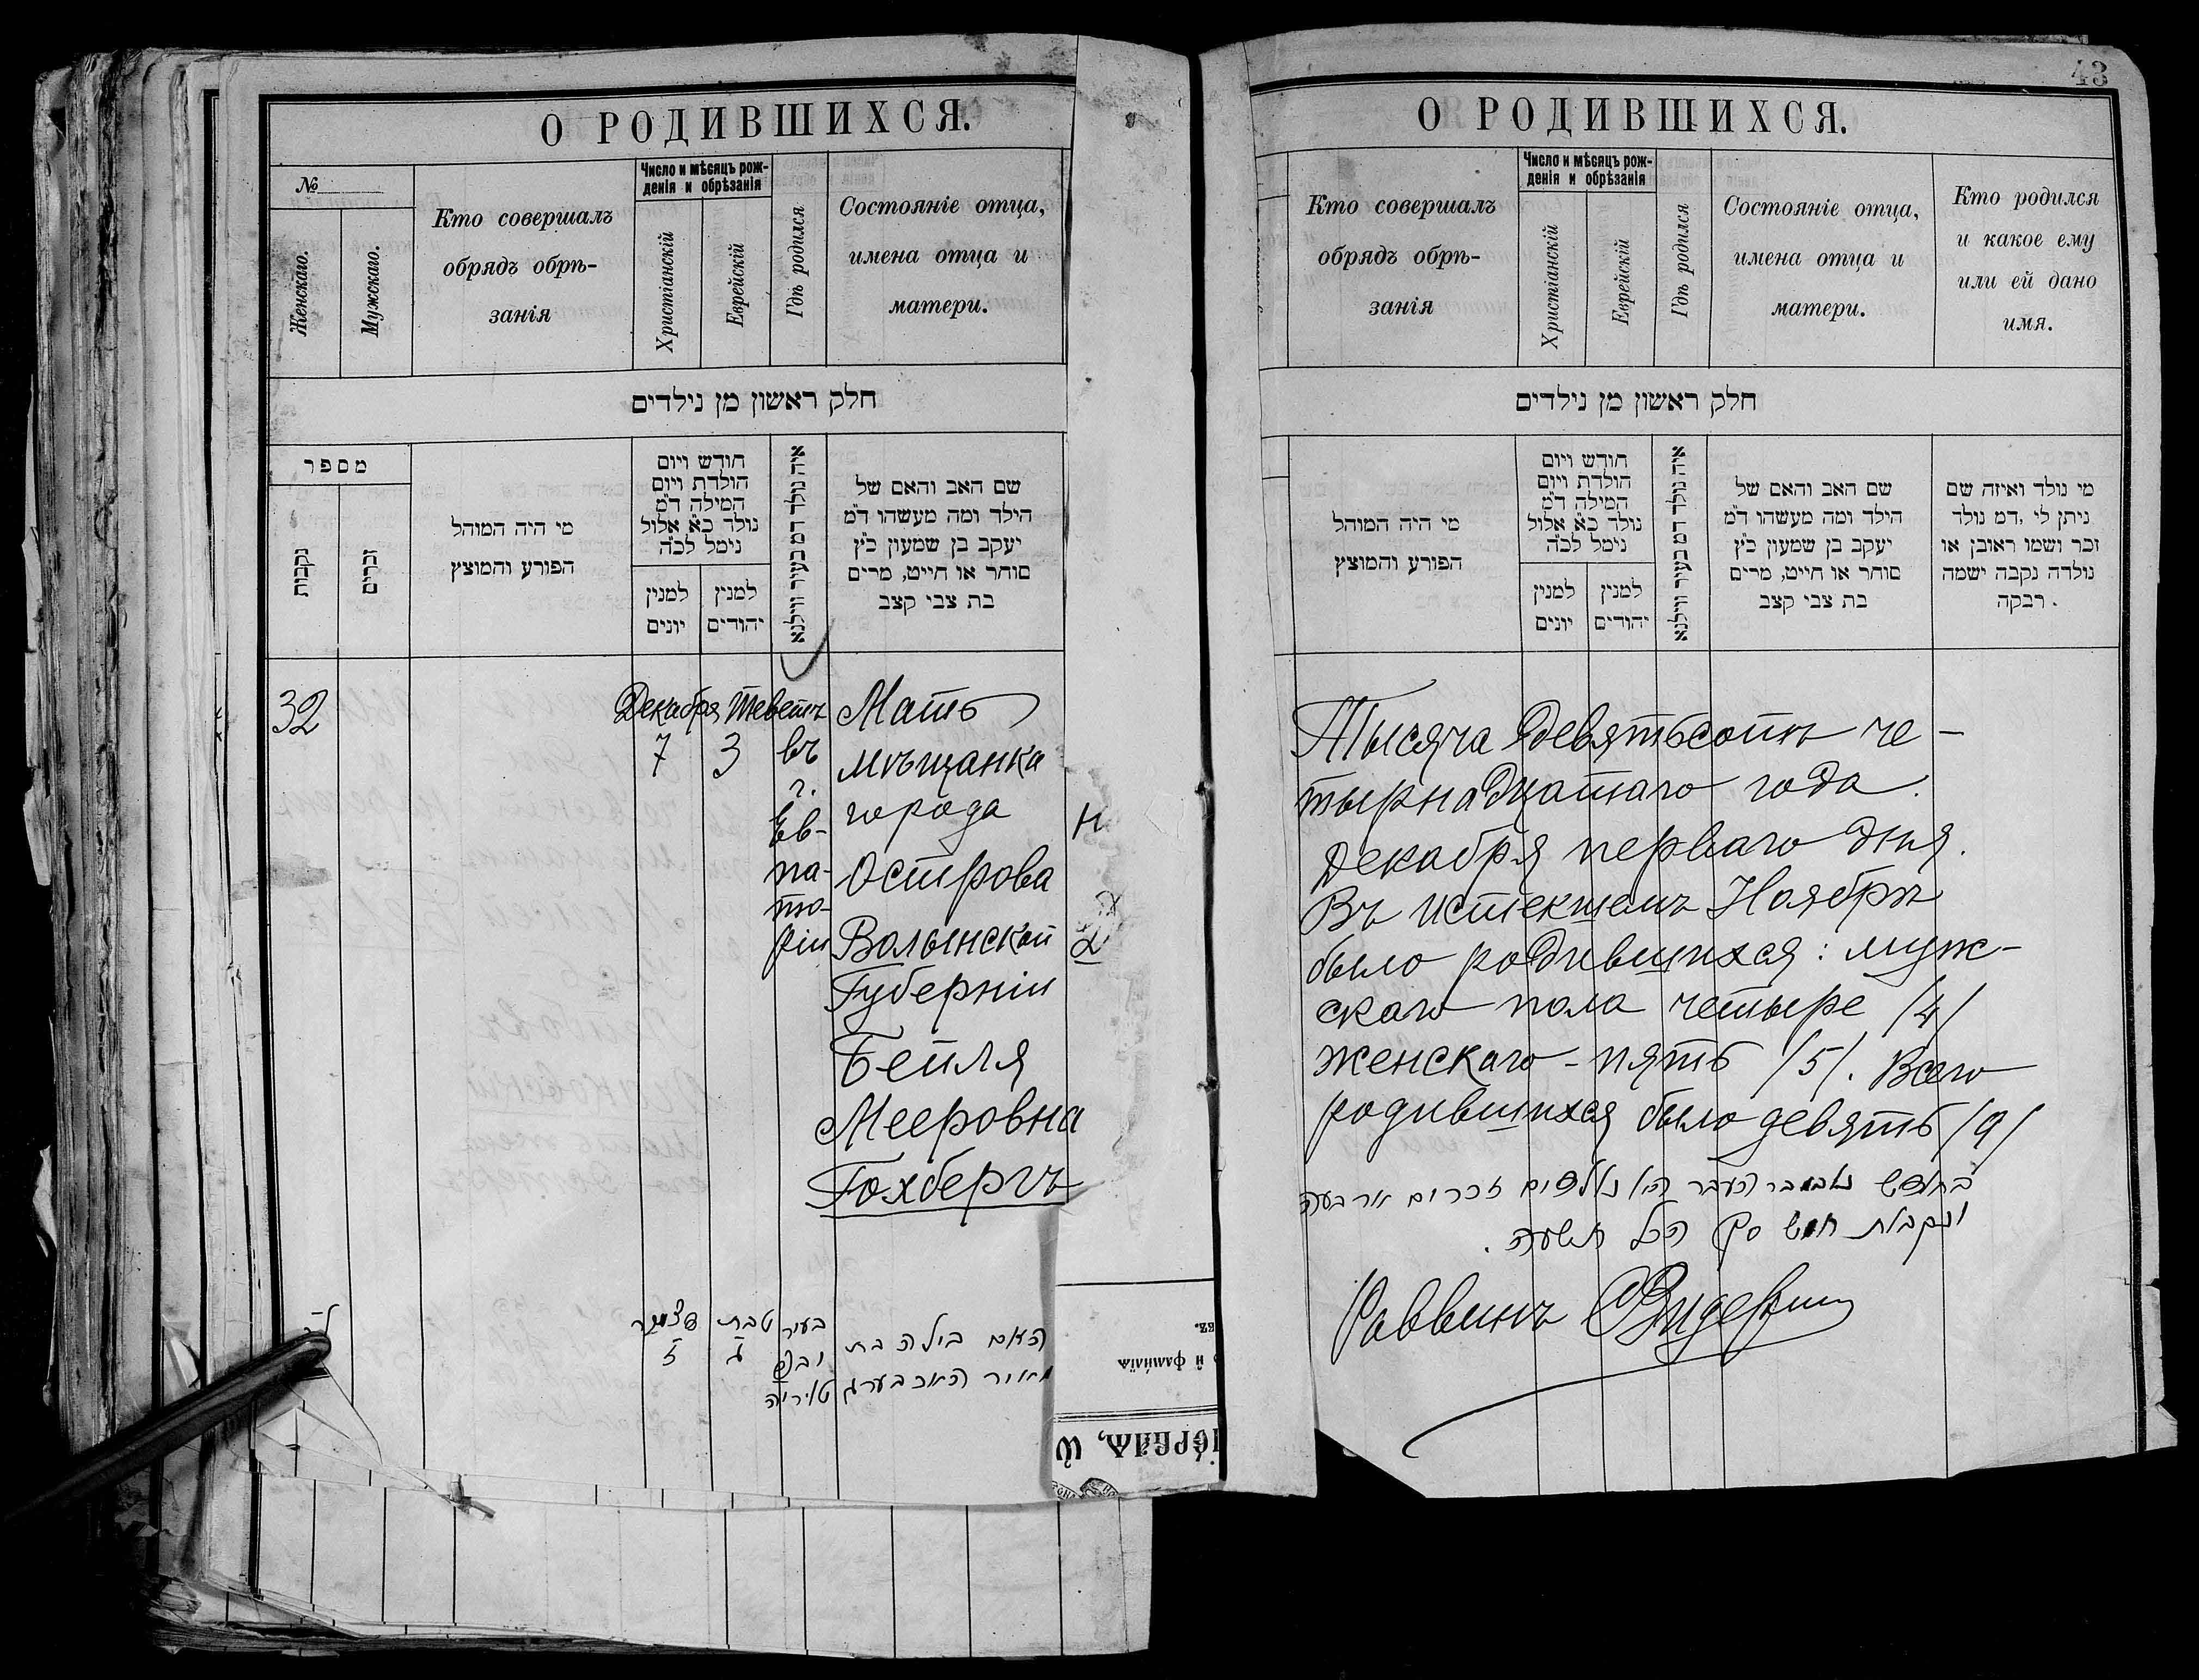 О РОДИВШИХСЯ.
№
Женскаго.
Мужскаго.
Кто совершалъ
обрядъ обрѣ-
занія
Число и мѣсяцъ рож-
денія и обрѣзанія
Христіанскій
Еврейскій
Гдѣ родился
Состояніе отца,
имена отца и
матери.
חלק ראשון מן נילדים
מספר
נקבות
זכרים
מי היה המוהל
הפורע והמוצץ
חודש ויום
הולדת ויום
המילה ד"מ
נולד כ"א אלול
נימל לכ"ה
למנין
יונים
למנין
יהודים
איה נולד דמ בעיר ווילנא
שם האב והאם של
הילד ומה מעשהו ד"מ
יעקב בן שמעון כ"ץ
סוחר או חייט, מרים
בת צבי קצב
32
Декабря
7
Теветъ
3
въ
г.
Ев-
па-
то-
ріи
Мать
мѣщанка
города
Острова
Волынской
Губерніи
Бейля
Мееровна
Гохбергъ
דצמבר
ז
טבת
ג
בעיר
טוריה
האם ביילה בת
מאיר האכבערג
43
О РОДИВШИХСЯ.
Кто совершалъ
обрядъ обрѣ-
занія
Число и мѣсяцъ рож-
денія и обрѣзанія
Христіанскій
Еврейскій
Гдѣ родился
Состояніе отца,
имена отца и
матери.
Кто родился
и какое ему
или ей дано
имя.
חלק ראשון מן נילדים
מי היה המוהל
הפורע והמוצץ
חודש ויום
הולדת ויום
המילה ד"מ
נולד כ"א אלול
נימל לכ"ה
למנין
יונים
למנין
יהודים
איה נולד דמ בעיר ווילנא
שם האב והאם של
הילד ומה מעשהו ד"מ
יעקב בן שמעון כ"ץ
סוחר או חייט, מרים
בת צבי קצב
מי נולד ואיזה שם
ניתן לי, דמ נולד
זכר ושמו ראובן או
נולדה נקבה ישמה
רבקה.
Тысяча девятьсотъ че-
тырнадцатаго года.
Декабря перваго дня.
Въ истекшемъ Ноябрѣ
было родившихся: муж-
скаго пола четыре /4/
женскаго - пять /5/. Всего
родившихся было девять /9/
בחודש נאבאבר העבר היו נולדים זכרים ארבעה
ונקבות חמש סך הכל תשעה.
Раввинъ